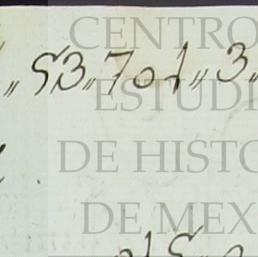 „ 53„ 701„ 3„
CENTRO
ESTUDI
DE HISTO
DE MEX